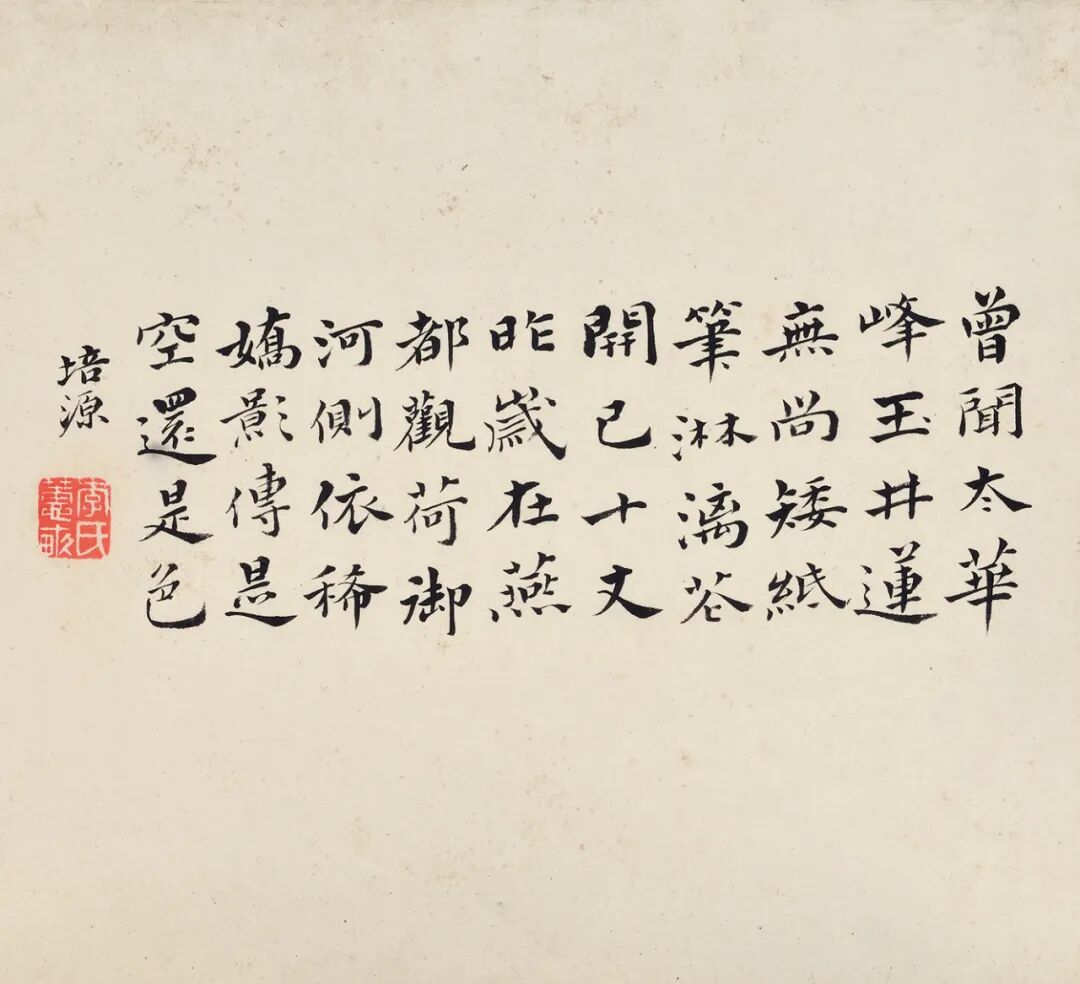 曾聞太華
峰玉井蓮
無尚矮紙
筆淋漓花
開已十丈
昨歲在燕
都觀荷御
河側依稀
嬌影傳是
空還是色
培源
李氏蕙畝